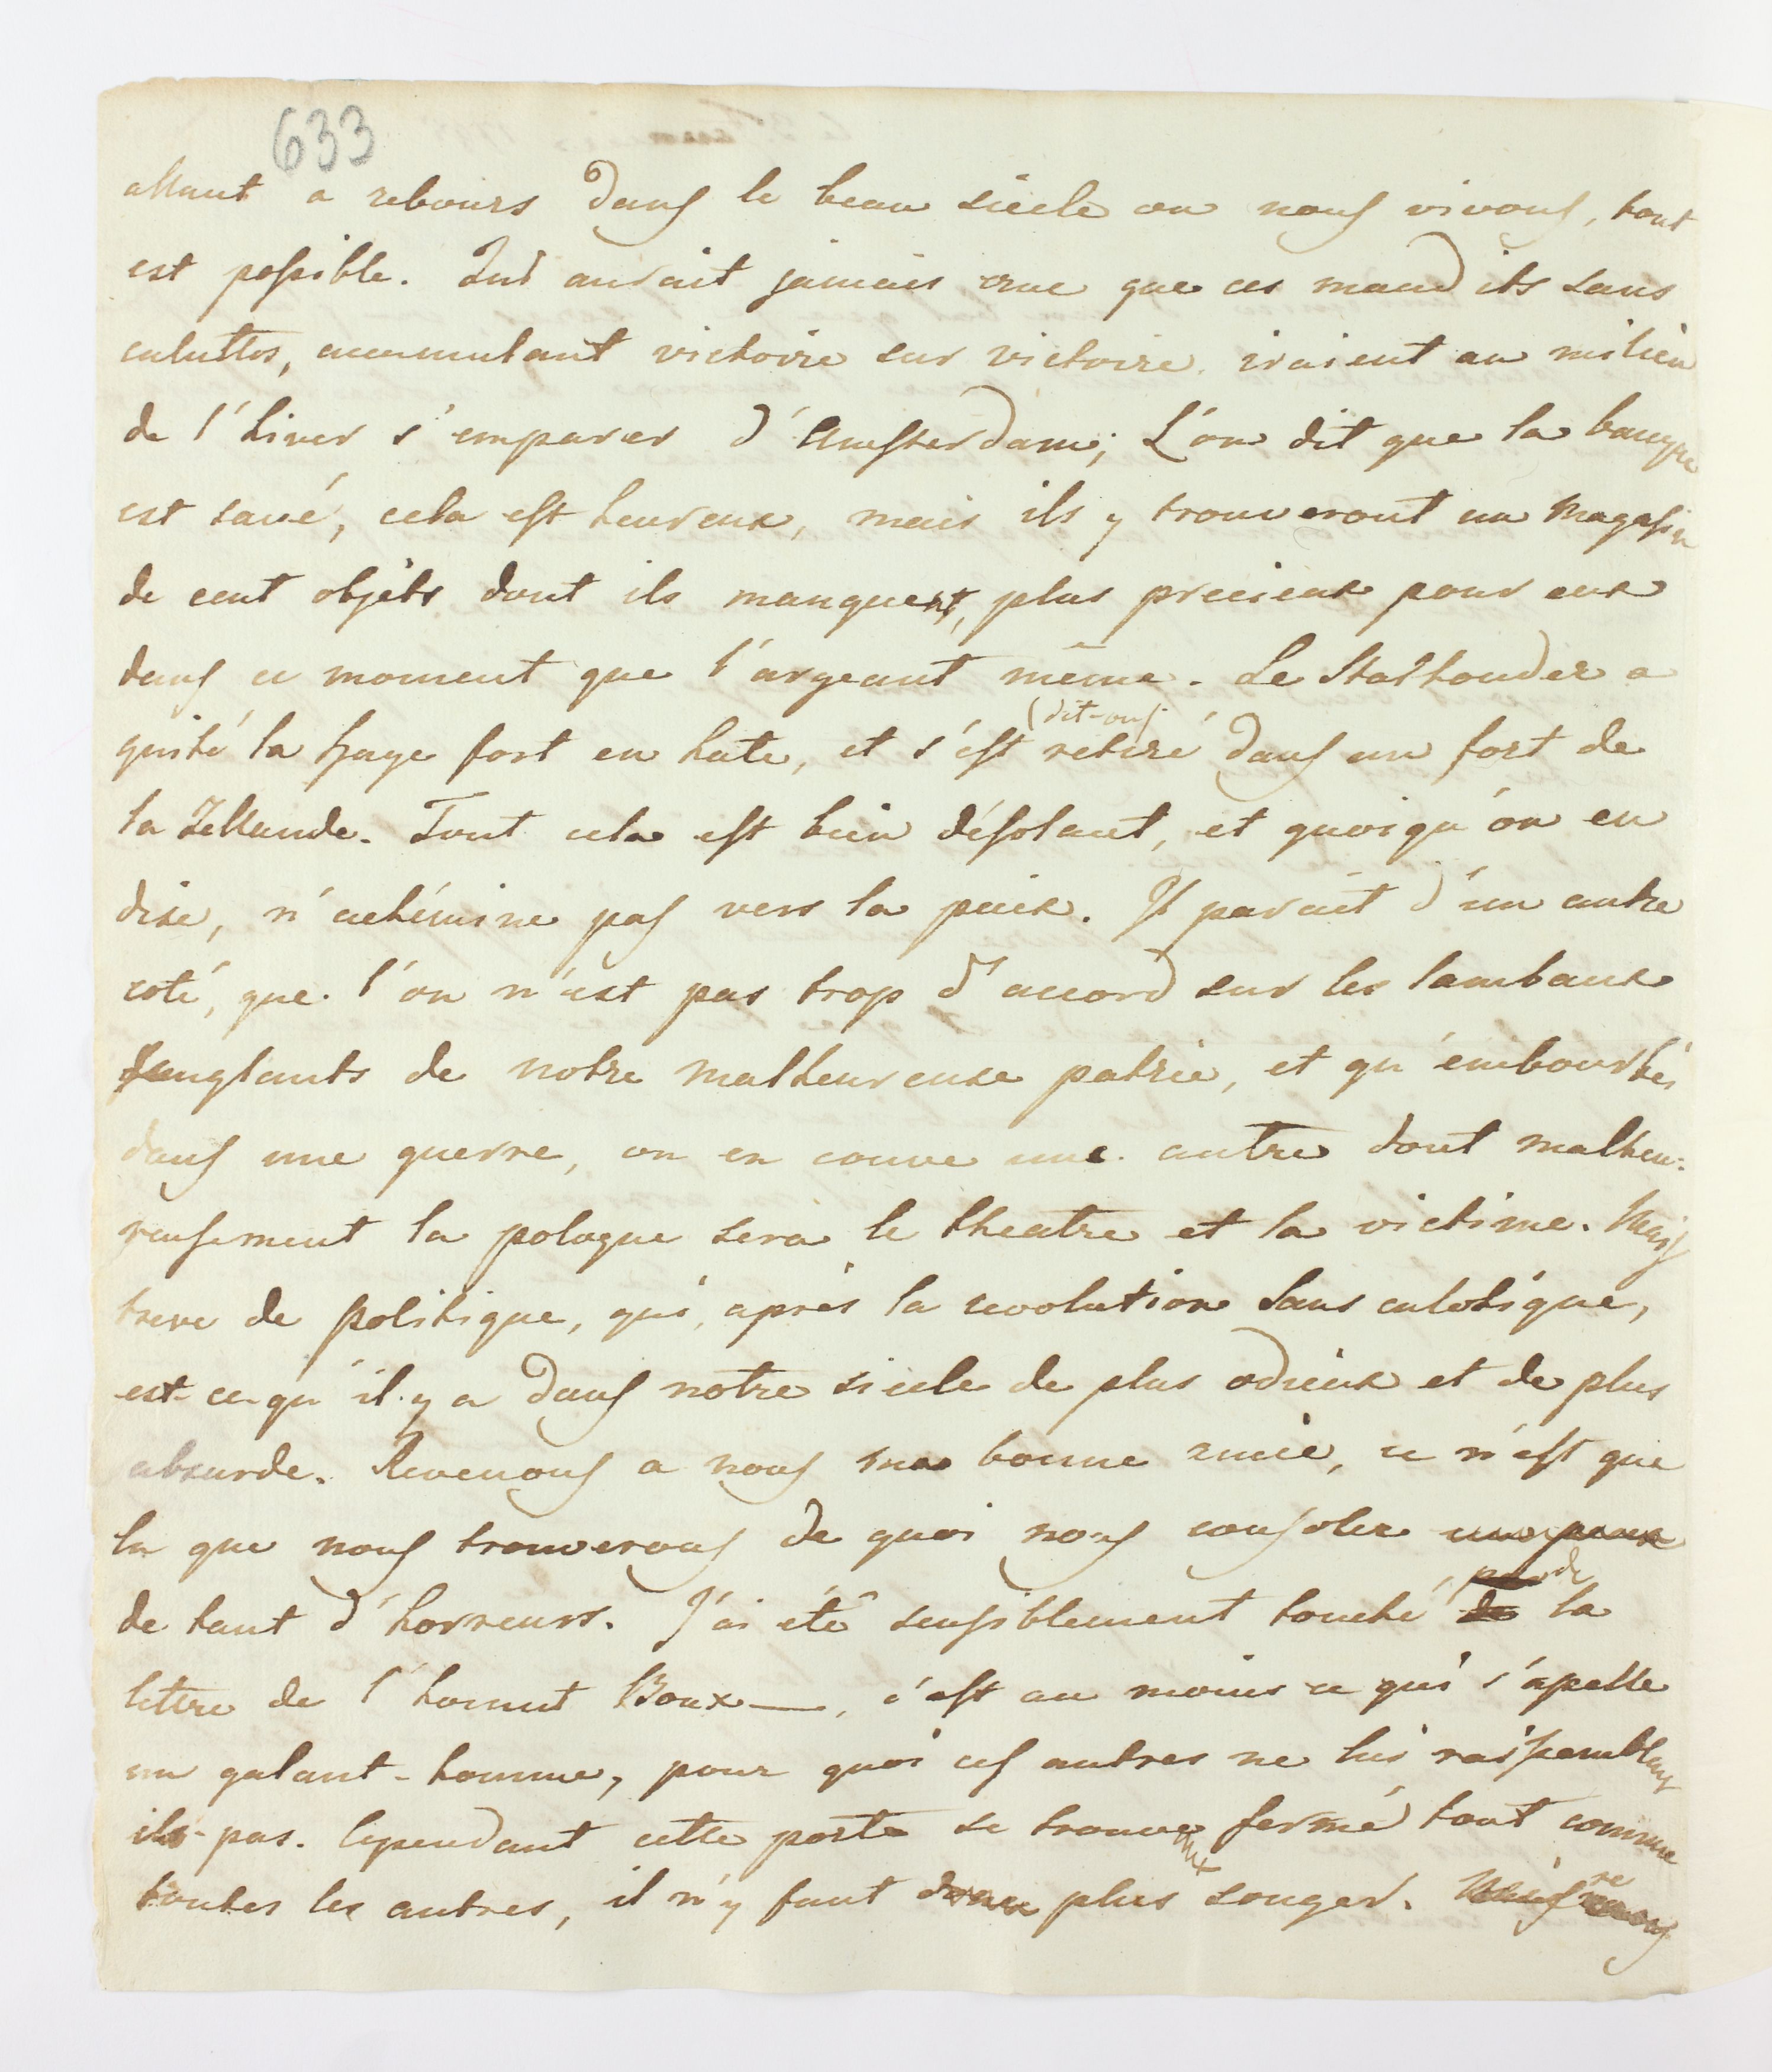 633
allant a rebours dans le beau siècle ou nous vivons, tout
est possible. Qui aurait jamais crue que ces maudits sans
culottes, accumulant victoire sur victoire, iraient au milieu
de l'hiver s'emparer d'Amsterdam; L'on dit que la banque
est sauvé, cela est heureux, mais ils y trouveront un magasin
de cent objèts dont ils manquent, plus precieux pour eux
dans ce moment que l'argeant même. Le Stathouder a
(dit-on)
quité la haye fort en hate, et s'est retiré dans un fort de
la Zellande. Tout cela est bien désolant, et quoiqu'on en
dise, n'achémine pas vers la paix. Il parait d'un autre
coté, que l'on n'est pas trop d'accord sur les lambaux
sanglants de notre malheureuse patrie, et qu'embourbés
dans une guerre, on en couve une autre dont malheu-
reusement la pologne sera le theatre et la victime. Mais
treve de politique, qui, après la revolution sans culotique,
est ce qu'il y a dans notre siecle de plus odieux et de plus
absurde. Revenons a nous ma bonne amie, ce n'est que
la que nous trouverons de quoi nous consoler un peux
de tant d'horreurs. J'ai eté sensiblement touché de la
lettre de l'honnet Boux—, c'est au moins ce qui s'apelle
un galant-homme, pour quoi ces autres ne lui raissemblent
ils-pas. Cependant cette porte se trouve fermé tout comme
toutes les autres, il n'y faut donc plus songer.